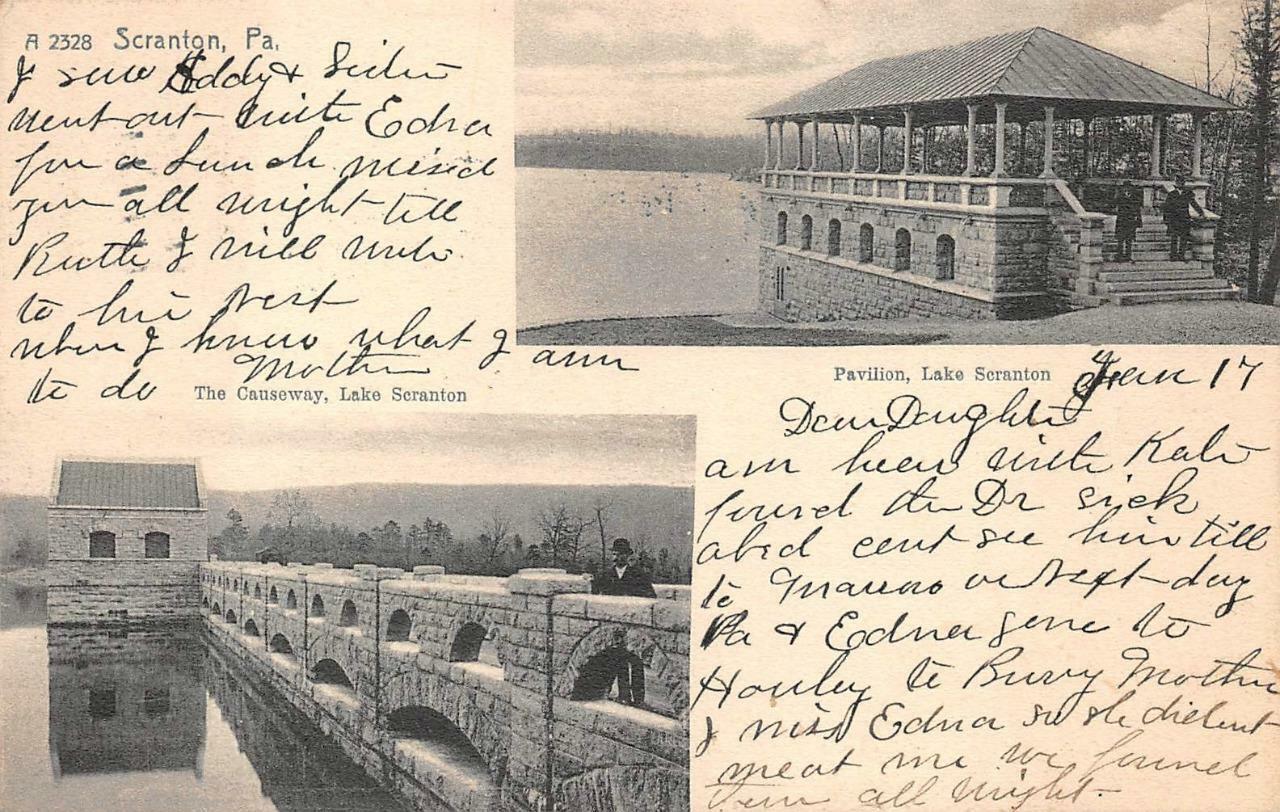 A 2328 Scranton, Pa.
I saw Eddy &
went out with Edna
for a Lunch missed
you all wright till
Ruth I will write
to her next
when I know what I am
to do Mother
The Causeway, Lake Scranton
Pavilion, Lake Scranton
Jan 17
Dear Daughter
am heer with Kate
found the Dr sick
abed cent see him till
to or next day
Pa & Edna gone to
Hawley to Bury Mother
I miss Edna so she dident
meat me we found
them all wright